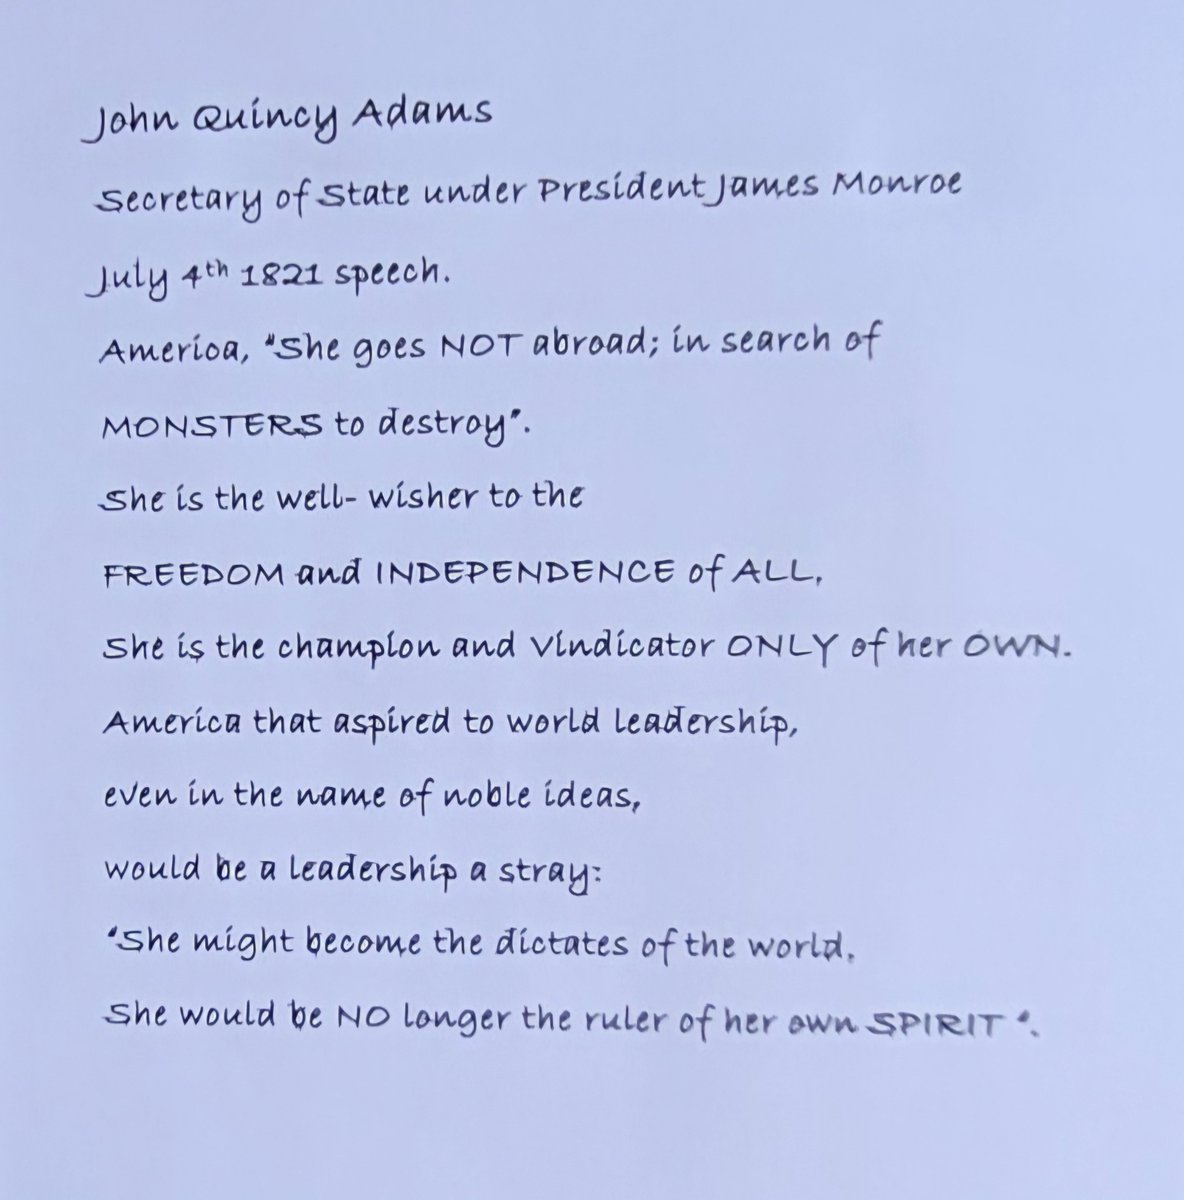 John Quincy Adams
Secretary of State under President James Monroe
July 4th 1821 speech.
America, "She goes NOT abroad; in search of
MONSTERS to destroy".
She is the well- wisher to the
FREEDOM and INDEPENDENCE of ALL,
She is the champion and Vindicator ONLY of her OWN.
America that aspired to world leadership,
even in the name of noble ideas,
would be a leadership a stray:
"She might become the dictates of the world.
She would be NO longer the ruler of her own SPIRIT".